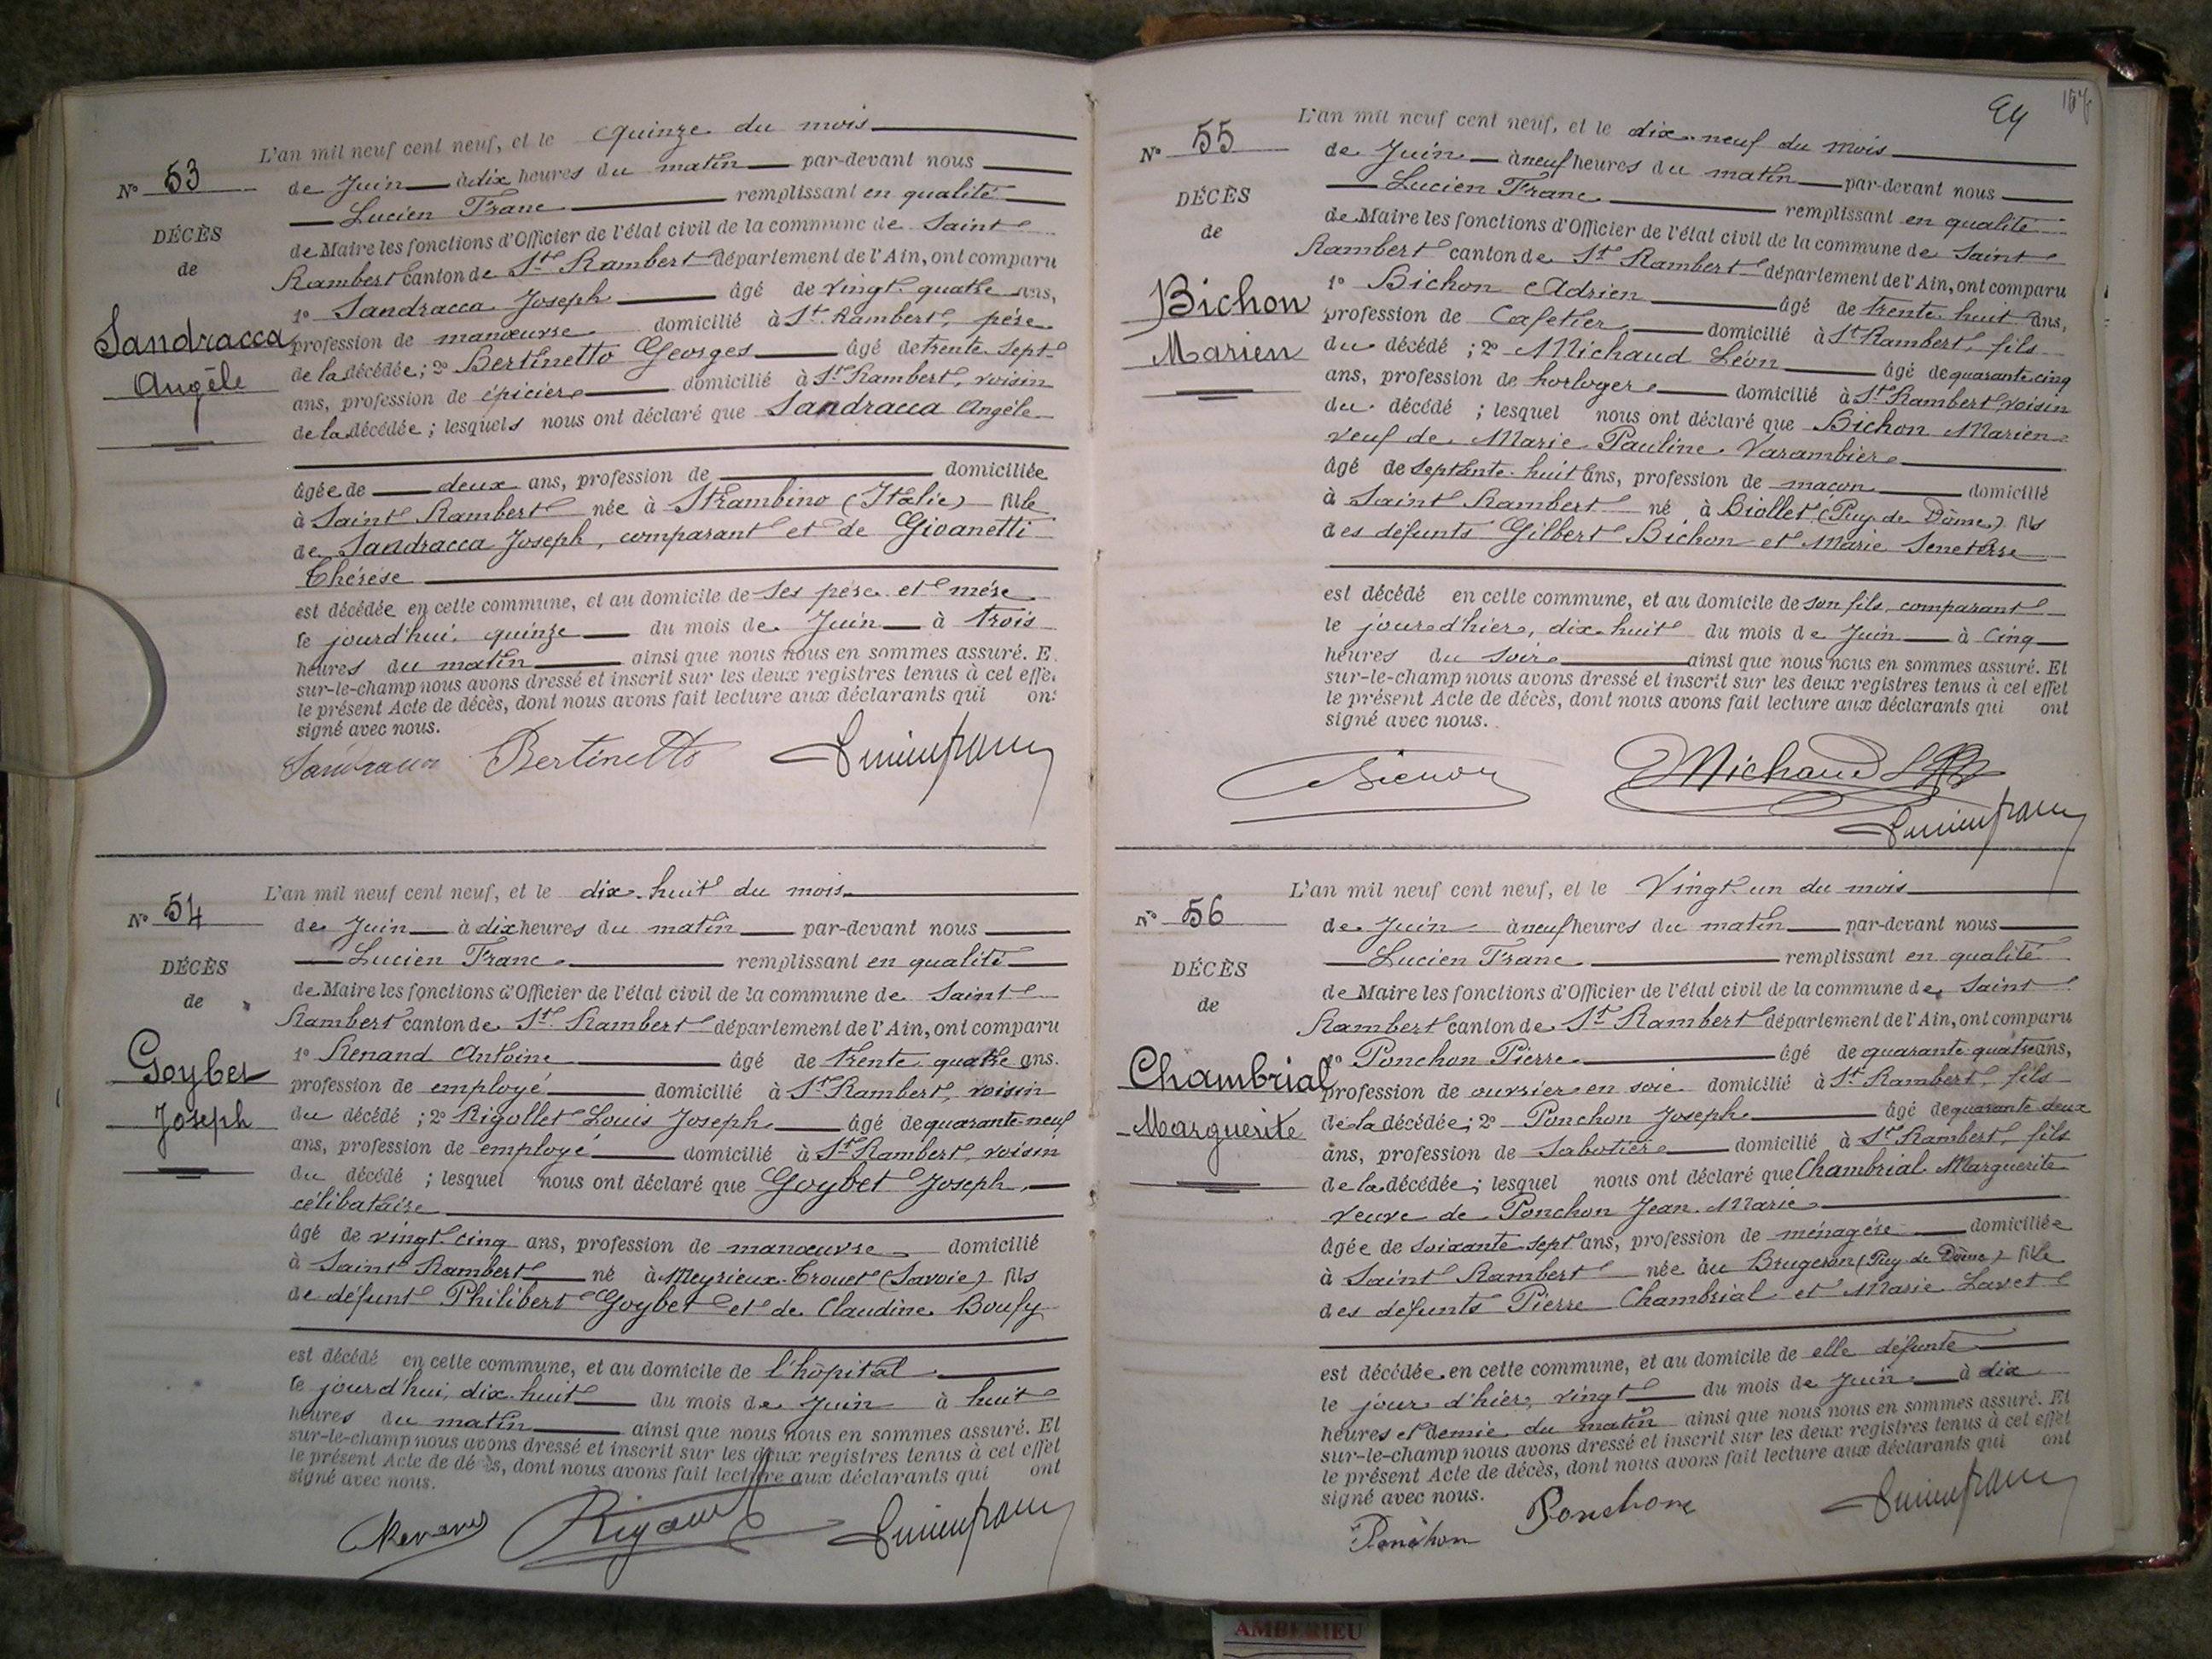 L'an mil neuf cent neuf, et le quinze du mois
N° 53
de Juin à dix heures du matin par-devant nous
Lucien Franc remplissant en qualité
DÉCÈS
de Maire les fonctions d'Officier de l'état civil de la commune de Saint
de
Rambert canton de St Rambert département de l'Ain, ont comparu
1° Sandracca Joseph âgé de vingt-quatre ans,
Sandracca
profession de manœuvre domicilié à St Rambert, père
Angèle
de la décédée; 2° Bertinetto Georges âgé de trente-sept
ans, profession de épicier domicilié à St Rambert, voisin
de la décédée; lesquels nous ont déclaré que Sandracca Angèle
âgée de deux ans, profession de domiciliée
à Saint Rambert née à Strambino (Italie) fille
de Sandracca Joseph, comparant et de Giovanetti
Thérèse
est décédée en cette commune, et au domicile de ses père et mère
le jourd'hui, quinze du mois de Juin à trois
heures du matin ainsi que nous nous en sommes assuré. E
sur-le-champ nous avons dressé et inscrit sur les deux registres tenus à cet effe
le présent Acte de décès, dont nous avons fait lecture aux déclarants qui on
signé avec nous.
Sandracca Bertinetto Lucien franc
L'an mil neuf cent neuf, et le dix-huit du mois
N° 54
de Juin à dix heures du matin par-devant nous
Lucien Franc remplissant en qualité
DÉCÈS
de Maire les fonctions d'Officier de l'état civil de la commune de Saint
de
Rambert canton de St Rambert département de l'Ain, ont comparu
1° Renand Antoine âgé de trente-quatre ans.
Goybet
profession de employé domicilié à St Rambert, voisin
Joseph
du décédé; 2° Rigollet Louis Joseph âgé de quarante-neuf
ans, profession de employé domicilié à St Rambert, voisin
du décédé; lesquel nous ont déclaré que Goybet Joseph,
célibataire
âgé de vingt-cinq ans, profession de manœuvre domicilié
à Saint Rambert né à Meyrieux-Trouet (Savoie) fils
de défunt Philibert Goybet et de Claudine Boufy
est décédé en cette commune, et au domicile de l'hôpital
le jourd'hui, dix-huit du mois de Juin à huit
heures du matin ainsi que nous nous en sommes assuré. Et
sur-le-champ nous avons dressé et inscrit sur les deux registres tenus à cet effet
le présent Acte de décès, dont nous avons fait lecture aux déclarants qui ont
signé avec nous.
Renand Lucien franc
94
L'an mil neuf cent neuf, et le dix-neuf du mois
N° 55
de Juin à neuf heures du matin par-devant nous
Lucien Franc remplissant en qualité
DÉCÈS
de Maire les fonctions d'Officier de l'état civil de la commune de Saint
de
Rambert canton de St Rambert département de l'Ain, ont comparu
1° Bichon Adrien âgé de trente-huit ans,
Bichon
profession de Cafetier domicilié à St Rambert, fils
Marien
du décédé; 2° Michaud Léon âgé de quarante-cinq
ans, profession de horloger domicilié à St Rambert, voisin
du décédé; lesquel nous ont déclaré que Bichon Marien
veuf de Marie Pauline Varambier
âgé de septante-huit ans, profession de maçon domicilié
à Saint Rambert né à Biollet (Puy-de-Dôme) fils
des défunts Gilbert Bichon et Marie Seneterre
est décédé en cette commune, et au domicile de son fils, comparant
le jour d'hier, dix-huit du mois de Juin à cinq
heures du soir ainsi que nous nous en sommes assuré. Et
sur-le-champ nous avons dressé et inscrit sur les deux registres tenus à cet effet
le présent Acte de décès, dont nous avons fait lecture aux déclarants qui ont
signé avec nous.
Bichon Michaud
Lucien franc
L'an mil neuf cent neuf, et le Vingt-un du mois
N° 56
de Juin à neuf heures du matin par-devant nous
Lucien Franc remplissant en qualité
DÉCÈS
de Maire les fonctions d'Officier de l'état civil de la commune de Saint
de
Rambert canton de St Rambert département de l'Ain, ont comparu
1° Ponchon Pierre âgé de quarante-quatre ans,
Chambrial
profession de ouvrier en soie domicilié à St Rambert, fils
Marguerite
de la décédée; 2° Ponchon Joseph âgé de quarante-deux
ans, profession de Sabotier domicilié à St Rambert, fils
de la décédée; lesquel nous ont déclaré que Chambrial Marguerite
veuve de Ponchon Jean-Marie
âgée de soixante-sept ans, profession de ménagère domiciliée
à Saint Rambert née au Brugeron (Puy-de-Dôme) fille
des défunts Pierre Chambrial et Marie Lavet
est décédée en cette commune, et au domicile de elle défunte
le jour d'hier, vingt du mois de Juin à dix
heures et demie du matin ainsi que nous nous en sommes assuré. Et
sur-le-champ nous avons dressé et inscrit sur les deux registres tenus à cet effet
le présent Acte de décès, dont nous avons fait lecture aux déclarants qui ont
signé avec nous.
Ponchon Ponchon Lucien franc
AMBERIEU